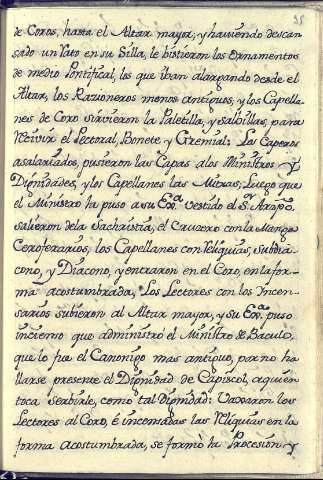 38
de Coros, hasta el Altar mayor, y haviendo descan
sado un rato en su Silla, le bistieron los Ornamentos
de medio Pontifical, los que iban alargando desde el
Altar, los Razioneros menos antiguos, y los Capella-
nes de Coro sirvieron la Paletilla, y salvillas, para
recivir el Pectoral, Bonete y Gremial: Los Caperos
asalariados, pusieron las Capas a los Ministros y
Dignidades, y los Capellanes las Mitras; Luego que
el Ministro ha puso a su Exa. vestido el Sr. Arzpo.
salieron de la Sachristia, el Cruzero con la Manga
Ceroferarios, los Capellanes con reliquias, Subdia-
cono, y Diacono, y entraron en el Coro, en la for-
ma acostumbrada, Los Lectores con los Yncen-
sarios subieron al Altar mayor, y su Exa. puso
incienso que administró el Ministro de Baculo,
que lo fue el Canonigo mas antiguo, por no ha
llarse presente el Dignidad de Capiscol, a quien
toca serbirle, como tal Dignidad: Vaxaron los
Lectores al Coro, é incensadas las reliquias en la
forma acostumbrada, se formó la Procesion y